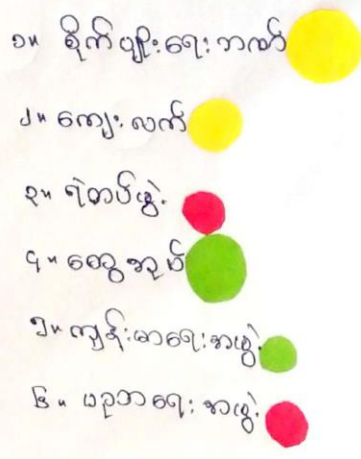 ၁။ စိုက်ပျိုးရေးဘဏ်
၂။ ကျေးလက်
၃။ ရဲတပ်ဖွဲ့
၄။ ထွေအုပ်
၅။ ကျန်းမာရေးအဖွဲ့
၆။ ပညာရေးအဖွဲ့